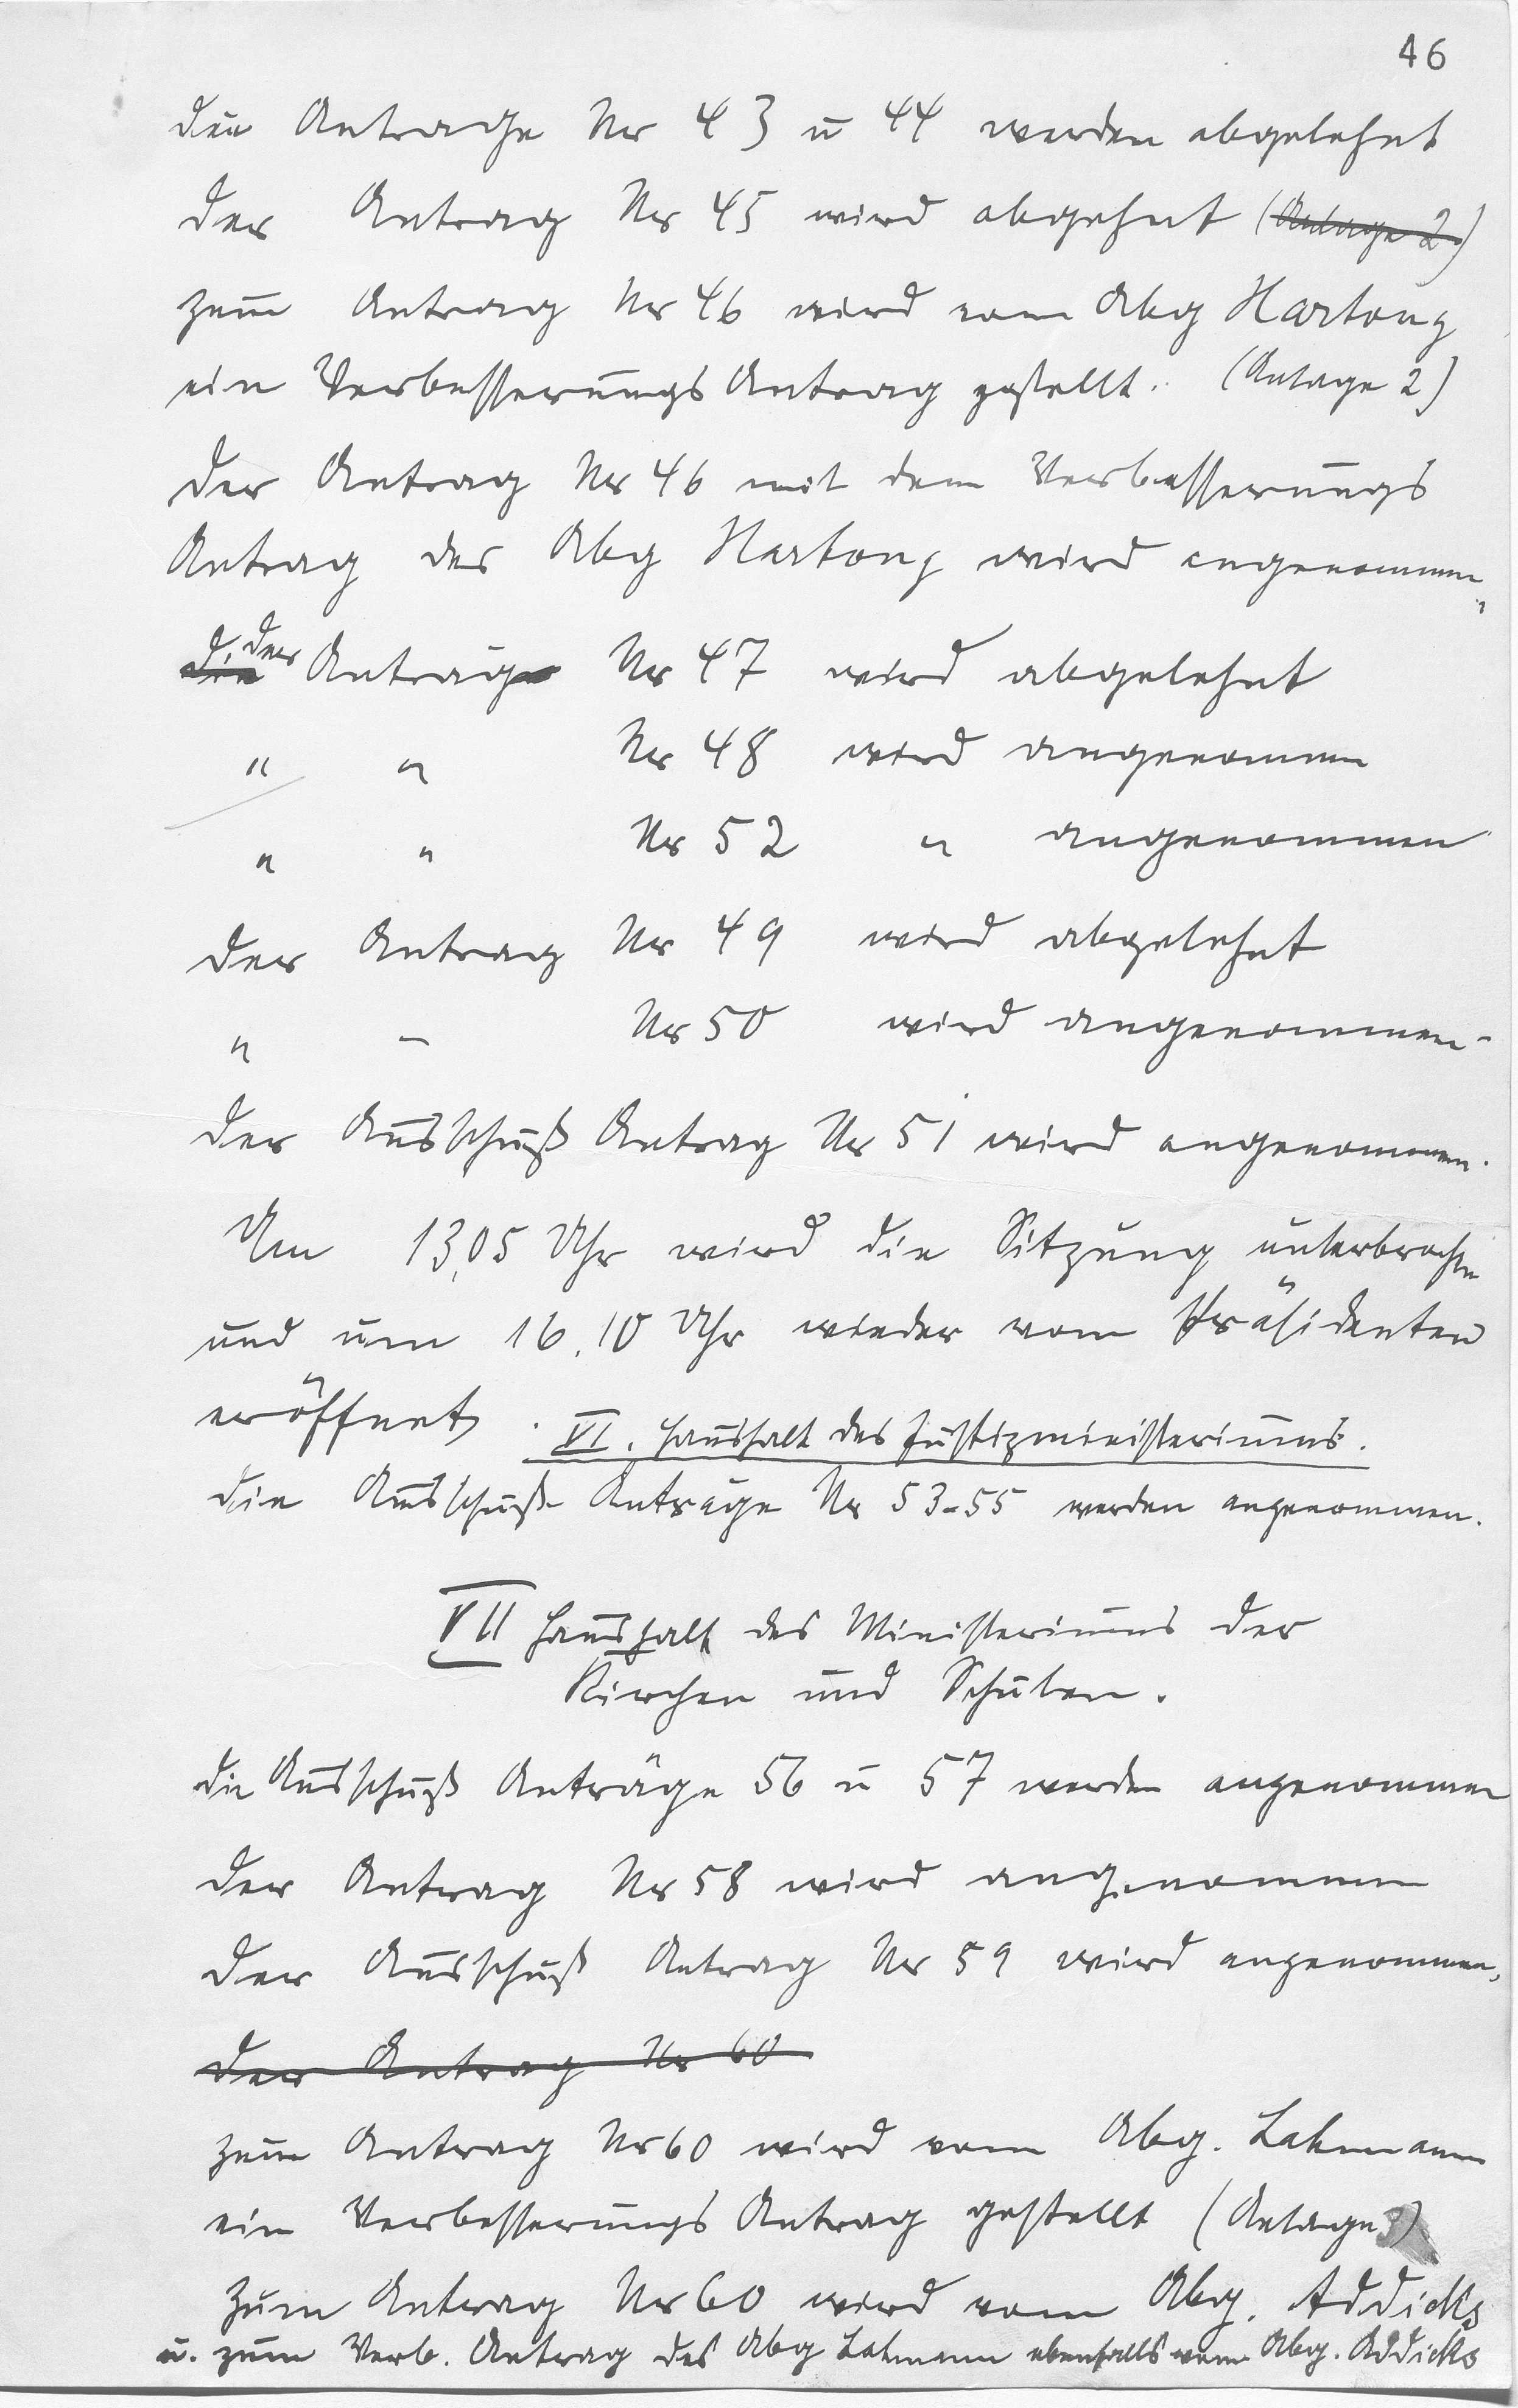 46
die Antrage Nr 43 u 44 werden abgelehnt
der Antrag Nr 45 wird abgehnt (Anlage 2)
zum Antrag Nr 46 wird vom Abg Hartong
ein Verbesserungs Antrag gestellt. (Anlage 2)
der Antrag Nr 46 mit dem Verbesserungs
Antrag des Abg Hartong wird angenommen,
die der Antrag Nr 47 wird abgelehnt
" " Nr 48 wird angenommen
" " Nr 52 " angenommen
der Antrag Nr 49 wird abgelehnt
" – Nr 50 wird angenommen.
der Ausschuß Antrag Nr 51 wird angenommen.
Um 13,05 Uhr wird die Sitzung unterbrochen
und um 16.10 Uhr wieder vom Präsidenten
eröffnet. VI. Haushalt des Justizministeriums.
die Ausschuß Anträge Nr 53-55 werden angenommen.
VII Haushalt des Ministeriums der
Kirchen und Schulen.
die Ausschuß Anträge 56 u 57 werden angenommen
der Antrag Nr 58 wird angenommen
der Ausschuß Antrag Nr 59 wird angenommen,
der Antrag Nr 60
zum Antrag Nr 60 wird vom Abg. Lahmann
ein Verbesserungs Antrag gestellt (Anlage 3)
zum Antrag Nr 60 wird vom Abg. Addicks
u. zum Verb. Antrag des Abg Lahmann ebenfalls vom Abg. Addicks